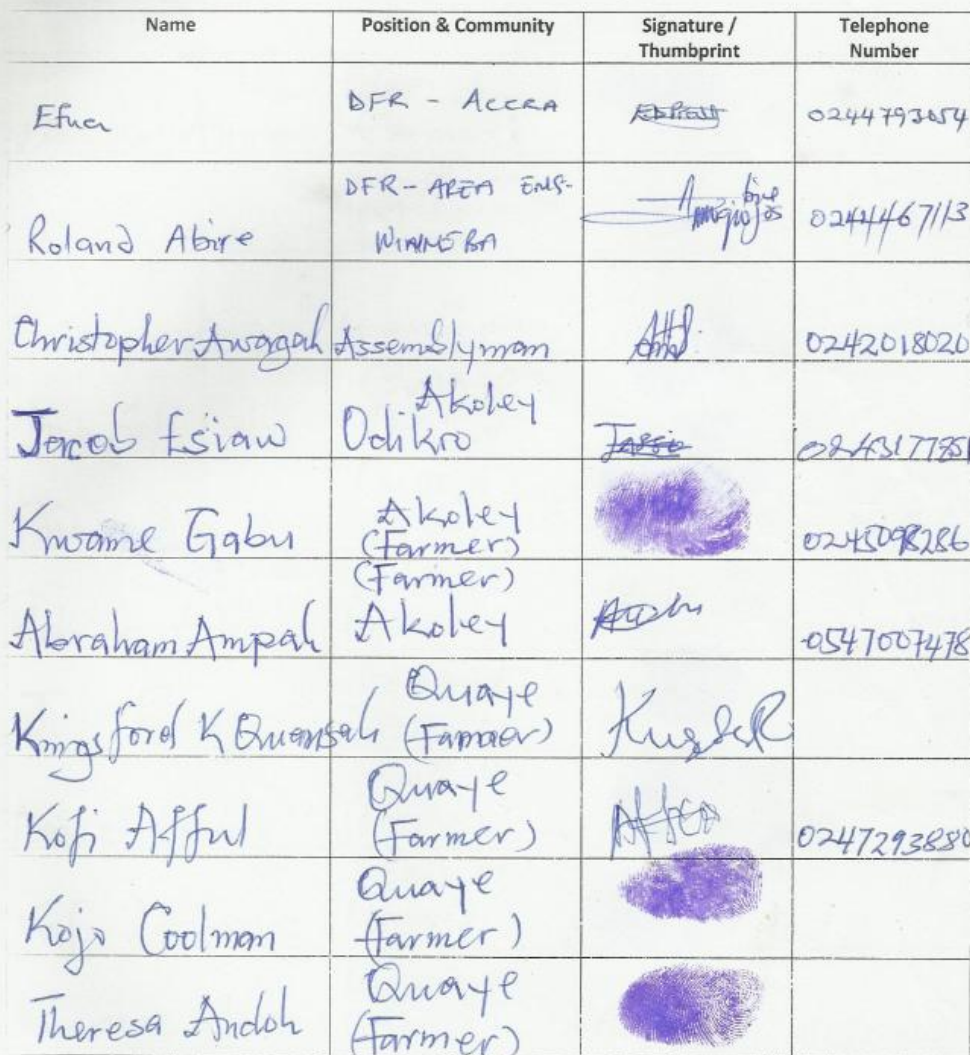 Name Position & Community Signature / Thumbprint Telephone Number
Efua DFR - ACCRA 0244793054
Roland Abire DFR - AREA ENG- WINNEBA 0244467113
Christopher Awagah Assemblyman 0242018020
Jacob Esiaw Akoley Odikro
Kwame Gabu Akoley (Farmer) 0245098286
Abraham Ampah (Farmer) Akoley 0547007478
Kingsford K Quansah Quaye (Farmer)
Kofi Afful Quaye (Farmer) 0247293880
Kojo Coolman Quaye (Farmer)
Theresa Andoh Quaye (Farmer)